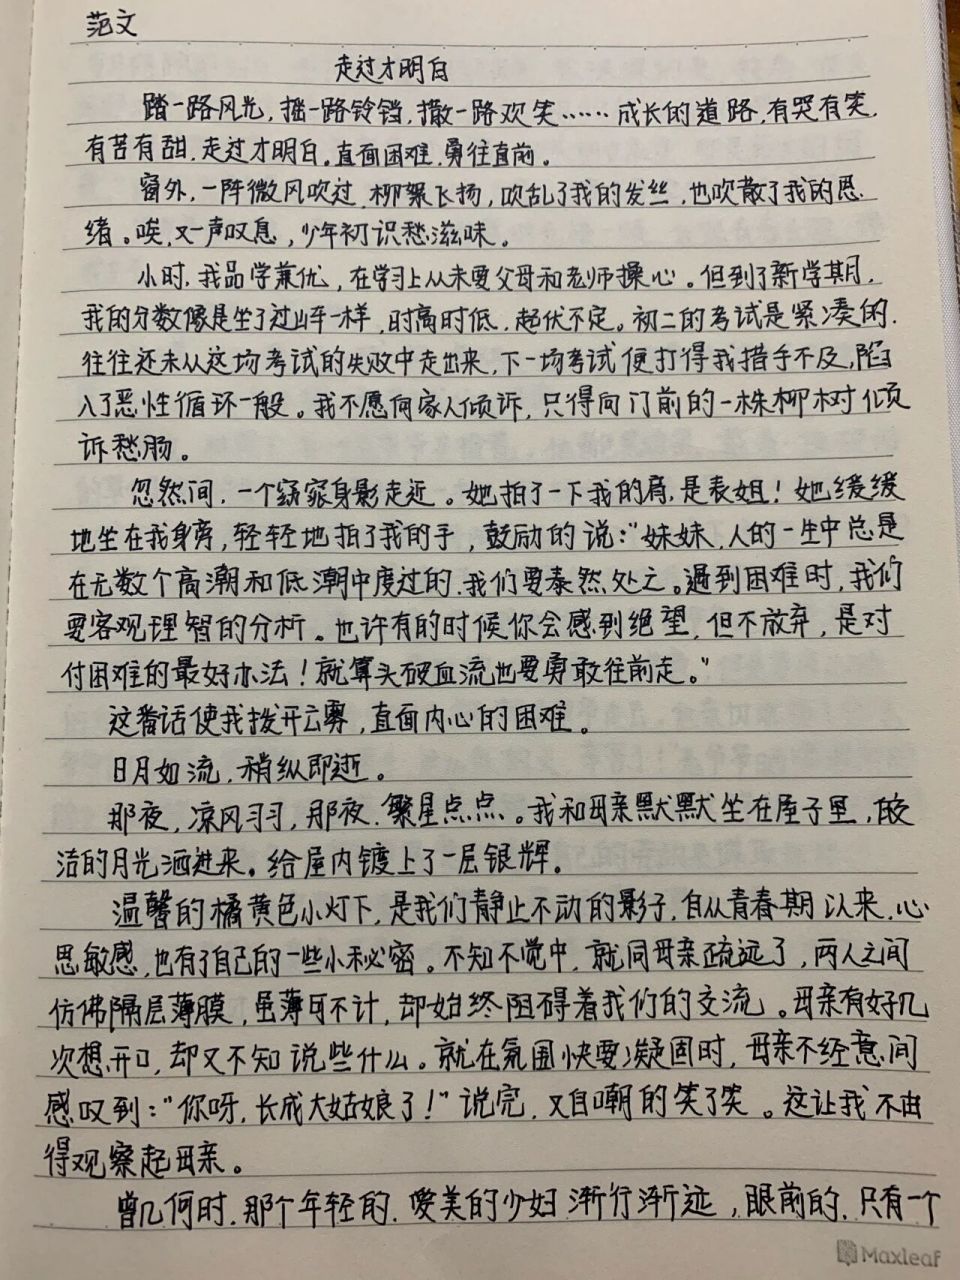 范文
走过才明白
踏一路风光,摇一路铃铛,撒一路欢笑……成长的道路,有哭有笑,
有苦有甜,走过才明白,直面困难,勇往直前。
窗外,一阵微风吹过,柳絮飞扬,吹乱了我的发丝,也吹散了我的思
绪。唉,又一声叹息,少年初识愁滋味。
小时,我品学兼优,在学习上从未要父母和老师操心。但到了新学期,
我的分数像是坐了过山车一样,时高时低,起伏不定。初二的考试是紧凑的,
往往还未从这场考试的失败中走出来,下一场考试便打得我措手不及,陷
入了恶性循环一般。我不愿向家人倾诉,只得向门前的一株柳树倾
诉愁肠。
忽然间,一个窈窕身影走近。她拍了一下我的肩,是表姐!她缓缓
地坐在我身旁,轻轻地拍了我的手,鼓励的说:“妹妹,人的一生中总是
在无数个高潮和低潮中度过的,我们要泰然处之。遇到困难时,我们
要客观理智的分析。也许有的时候你会感到绝望,但不放弃,是对
付困难的最好办法!就算头破血流也要勇敢往前走。”
这番话使我拨开云雾,直面内心的困难。
日月如流,稍纵即逝。
那夜,凉风习习,那夜,繁星点点。我和母亲默默坐在屋子里,皎
洁的月光洒进来。给屋内镀上了一层银辉。
温馨的橘黄色小灯下,是我们静止不动的影子,自从青春期以来,心
思敏感,也有了自己的一些小秘密。不知不觉中,就同母亲疏远了,两人之间
仿佛隔层薄膜,虽薄可不计,却始终阻碍着我们的交流。母亲有好几
次想开口,却又不知说些什么。就在氛围快要凝固时,母亲不经意间
感叹到:“你呀,长成大姑娘了!”说完,又自嘲的笑了笑。这让我不由
得观察起母亲。
曾几何时,那个年轻的,爱美的少妇渐行渐远,眼前的,只有一个
Maxleaf